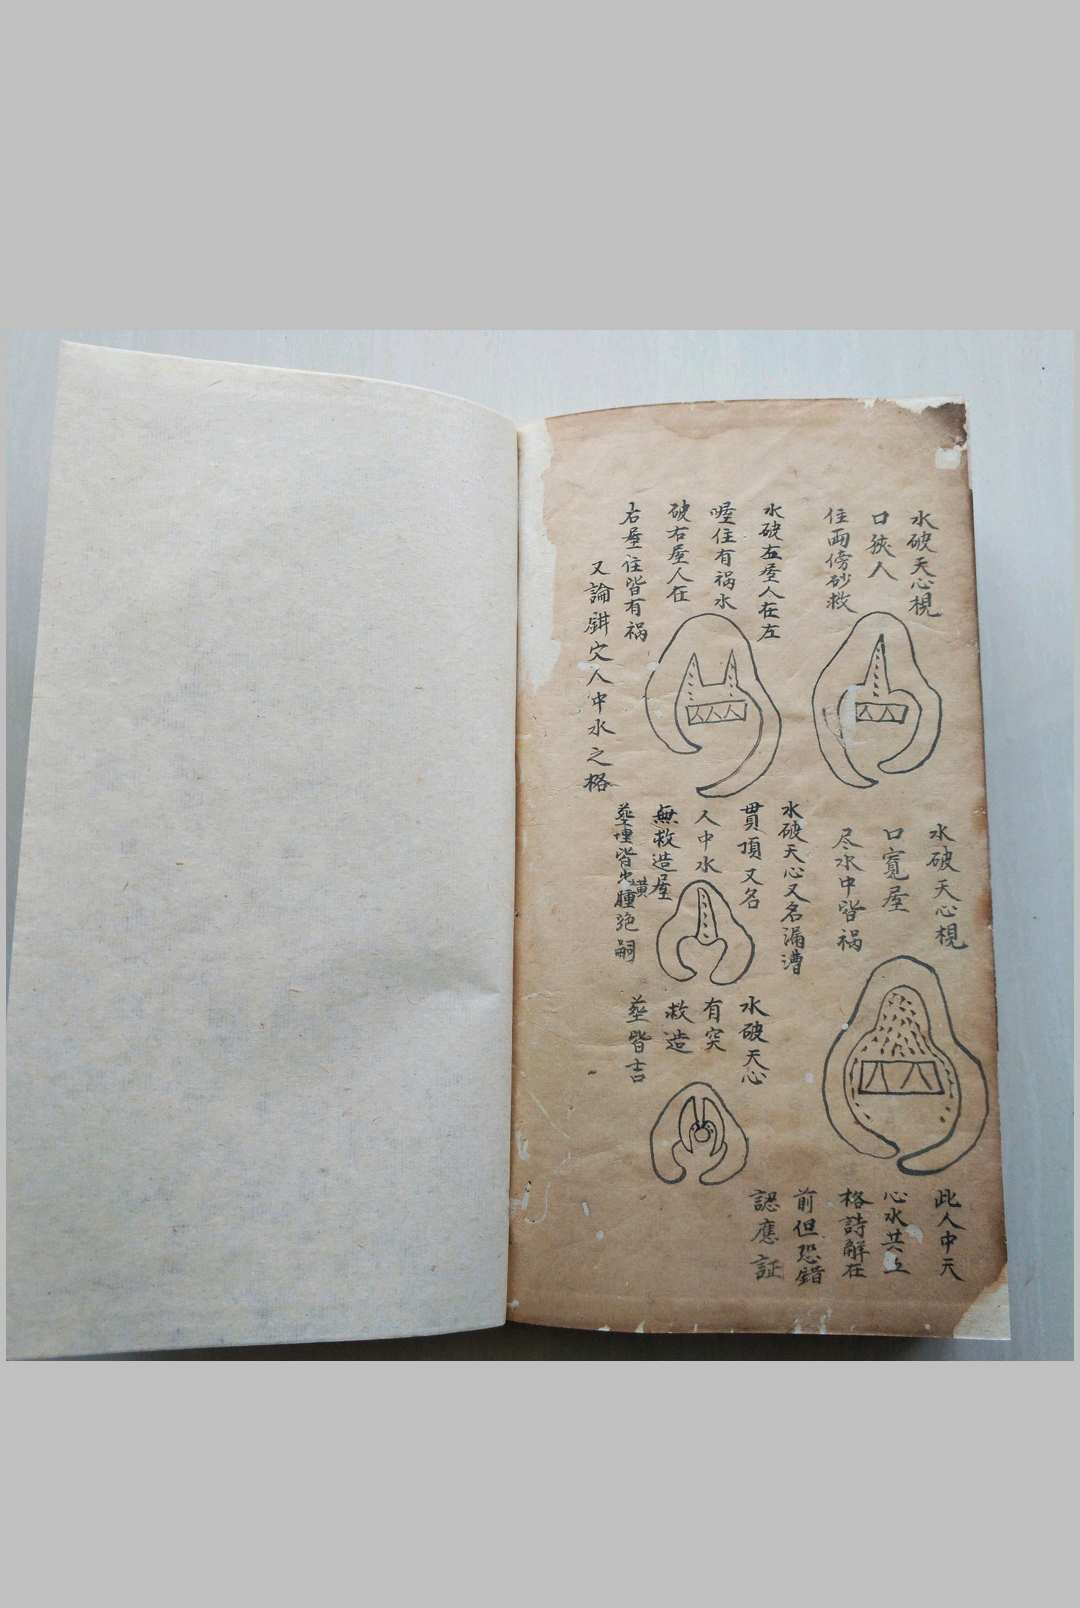 水破天心梘
口狹人
住兩傍砂救
水破左屋人在左
喔住有禍水
破右屋人在
右屋住皆有禍
又論鉗穴人中水之格
水破天心梘
口寬屋
尽水中皆禍
水破天心又名漏漕
貫頂又名
人中水
無救造屋
葬埋皆出黄腫絶嗣
水破天心
有突
救造
葬皆吉
此人中天
心水共五
格詩解在
前但恐錯
認應証